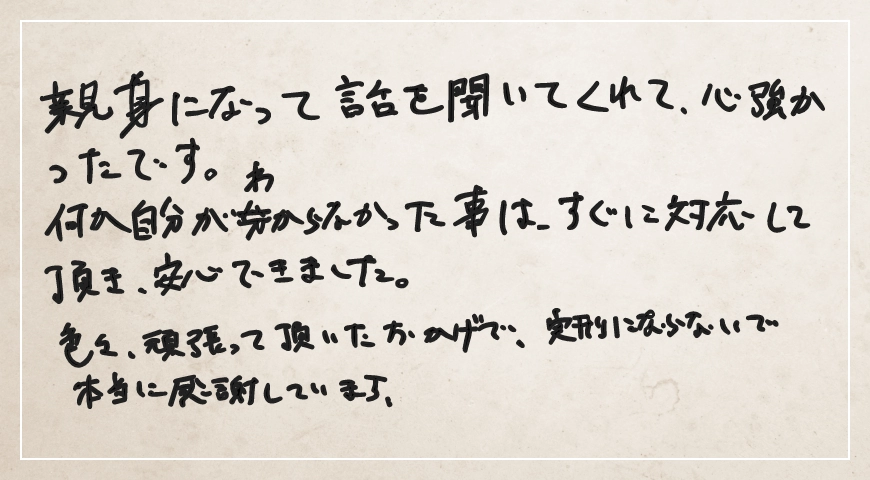 親身になって話を聞いてくれて、心強か
ったです。
わ
何か自分が分からなかった事は、すぐに対応して
頂き、安心できました。
色々、頑張って頂いたおかげで、実刑にならないで
本当に感謝しています。